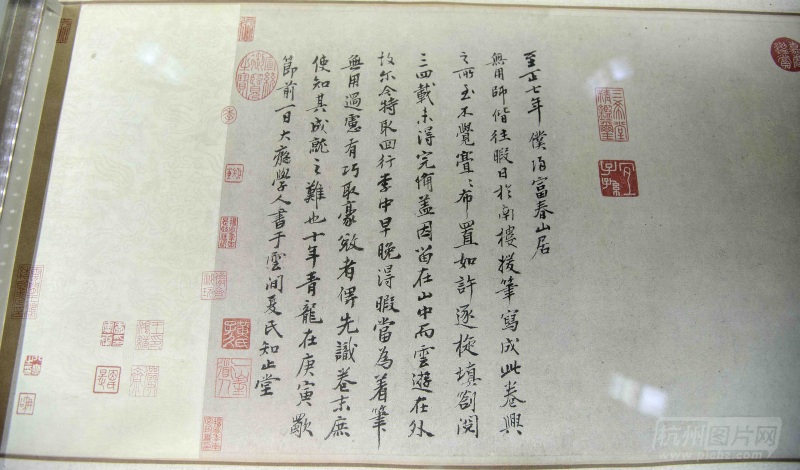 至正七年僕歸富春山居
無用師偕往暇日於南樓援筆寫成此卷興
之所至不覺亹〻布置如許逐旋填劄閱
三四載未得完備盖因留在山中而雲遊在外
故尔今特取回行李中早晚得暇當為着筆
無用過慮有巧取豪敓者俾先識卷末庶
使知其成就之難也十年青龍在庚寅歜
節前一日大癡學人書于雲間夏氏知止堂
三希堂精鑑璽
宜子孫
黃氏子久
一峯道人
杭州图片网